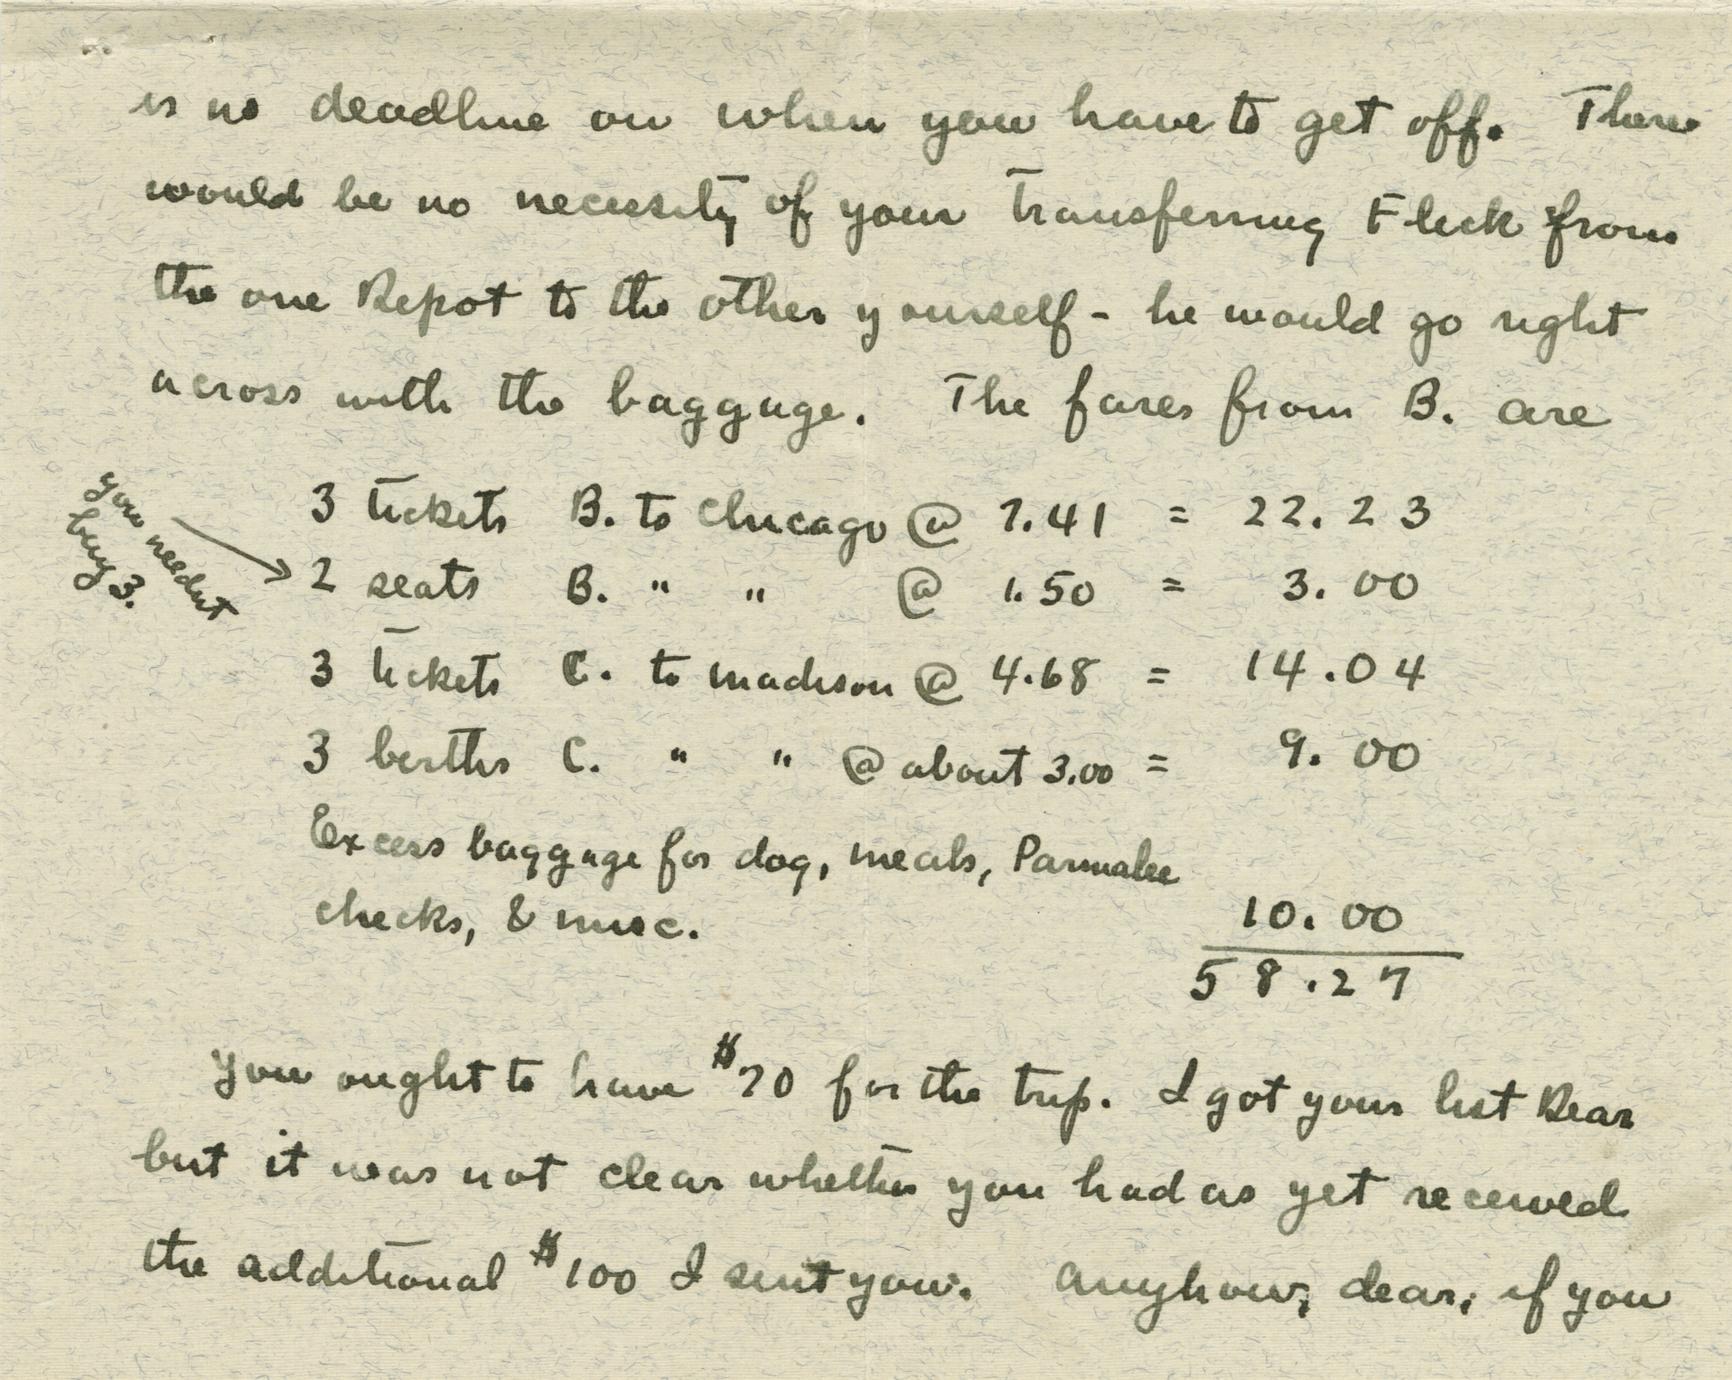 is no deadline on when you have to get off. There
would be no necessity of your transferring Flick from
the one Depot to the other yourself - he would go right
across with the baggage. The fares from B. are
you needn't
buy 3.
3 tickets B. to Chicago @ 7.41 = 22.23
2 seats B. " " @ 1.50 = 3.00
3 tickets C. to Madison @ 4.68 = 14.04
3 berths C. " " @ about 3.00 = 9.00
Excess baggage for dog, meals, Parmalee
checks, & misc. 10.00
58.27
You ought to have $70 for the trip. I got your list Dear
but it was not clear whether you had as yet received
the additional $100 I sent you. Anyhow, dear, if you